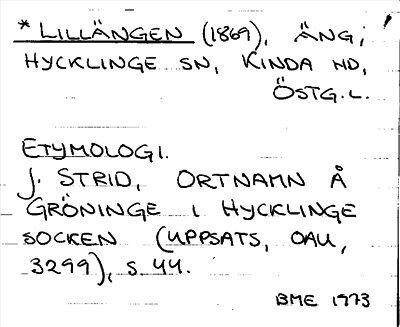 * LILLÄNGEN (1869), ÄNG;
HYCKLINGE SN, KINDA HD,
ÖSTG.L.
ETYMOLOGI.
J. STRID, ORTNAMN Å
GRÖNINGE I HYCKLINGE
SOCKEN (UPPSATS, OAU,
3299), S. 44.
BME 1973